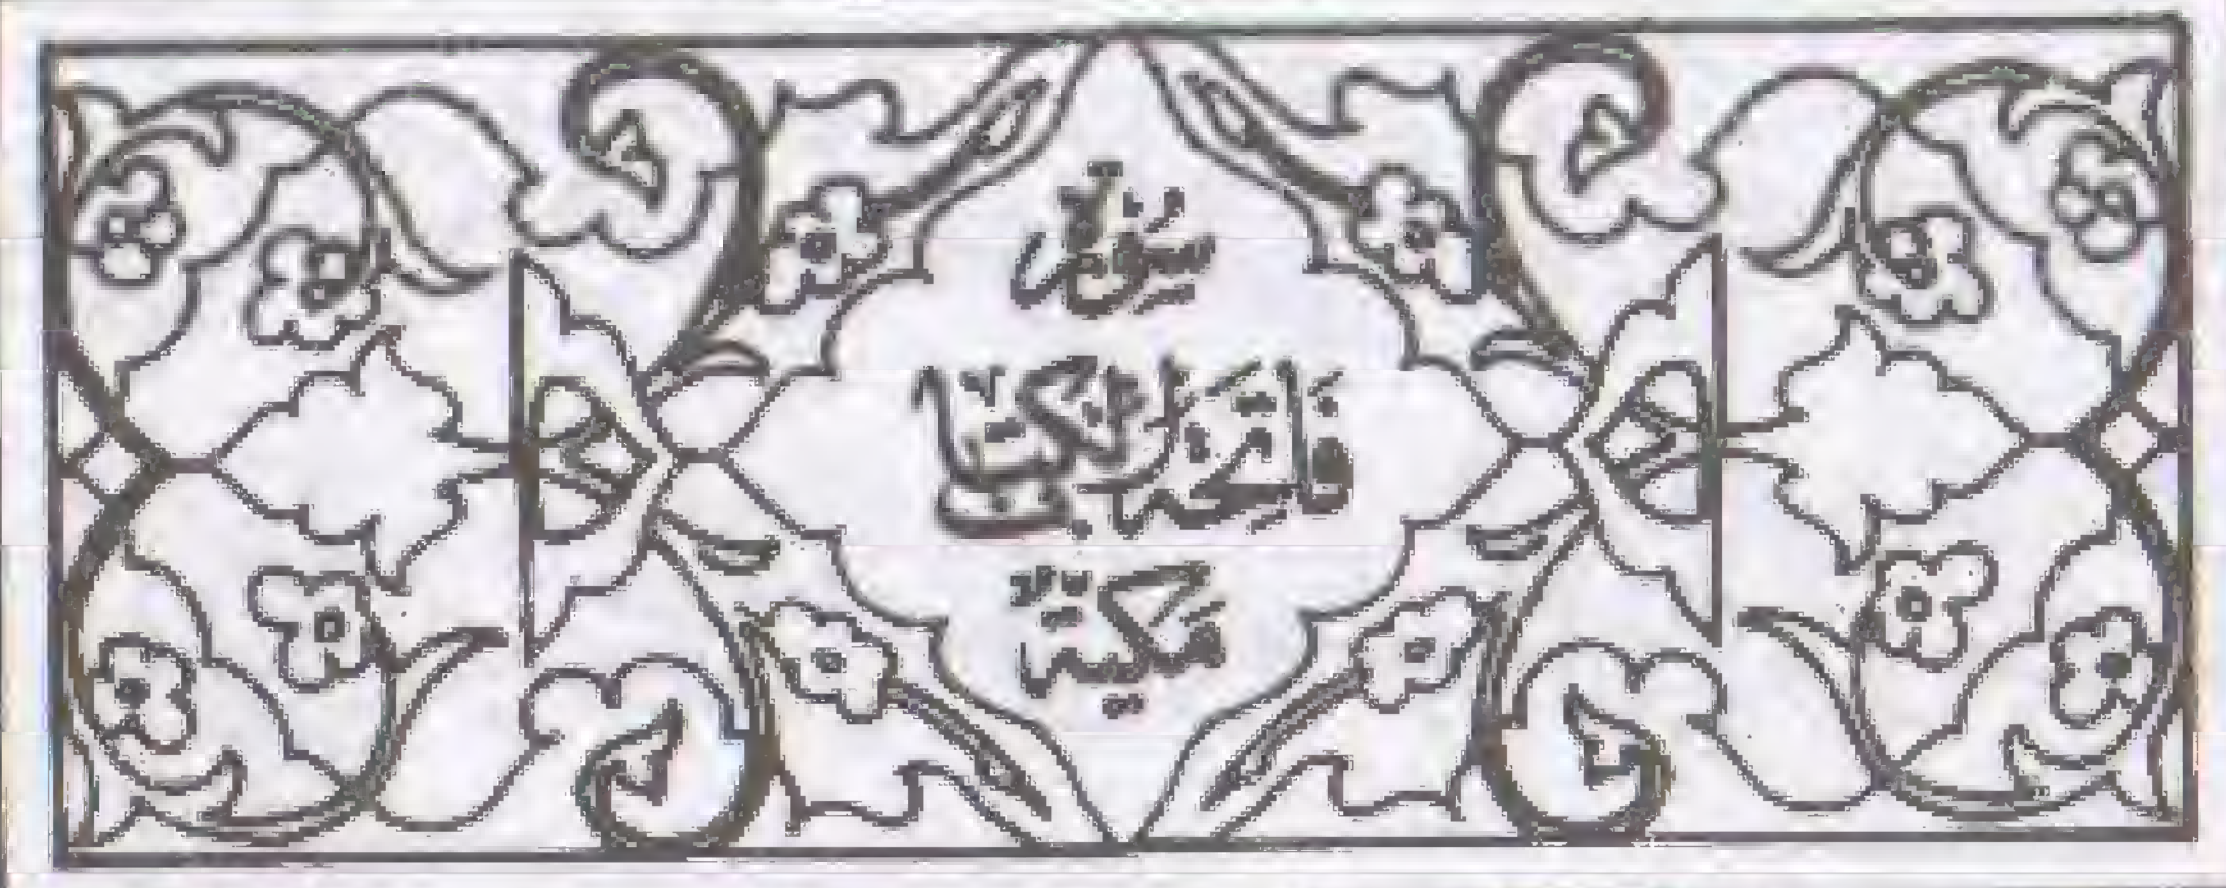 سُورَةُ
فَاتِحَةِ الْكِتَابِ
مَكِّيَّةٌ